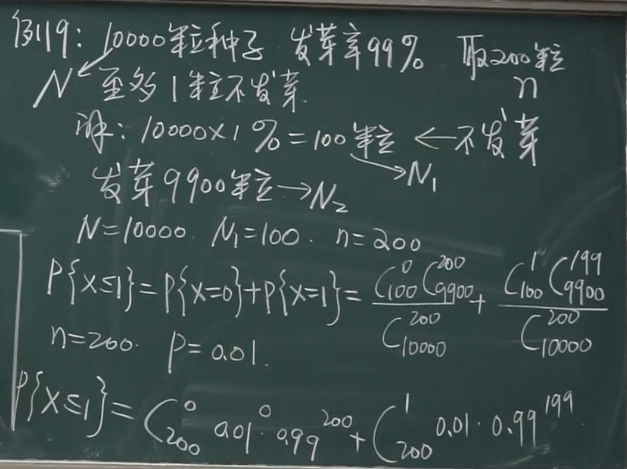 例19: 10000粒种子 发芽率99% 取200粒
N 至多1粒不发芽. n
解: 10000×1%=100粒 ← 不发芽
→N₁
发芽9900粒→N₂
N=10000. N₁=100. n=200
P{X≤1}=P{X=0}+P{X=1}= \frac{C_{100}^{0} C_{9900}^{200}}{C_{10000}^{200}} + \frac{C_{100}^{1} C_{9900}^{199}}{C_{10000}^{200}}
n=200. P=0.01.
P{X≤1}= C_{200}^{0} 0.01^{0} · 0.99^{200} + C_{200}^{1} 0.01 · 0.99^{199}